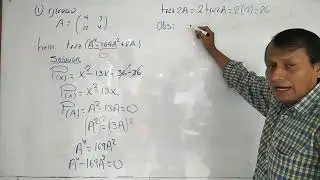 A = ( 9 3
12 4 )
traz(A⁴-169A²+2A)
Solución
P(x) = x²-13x+36-36
P(x) = x²-13x
P(A) = A²-13A = 0
(A²)² = (13A)²
A⁴ = 169A²
A⁴-169A² = 0
traz 2A = 2 traz A = 2(13) = 26
Obs: